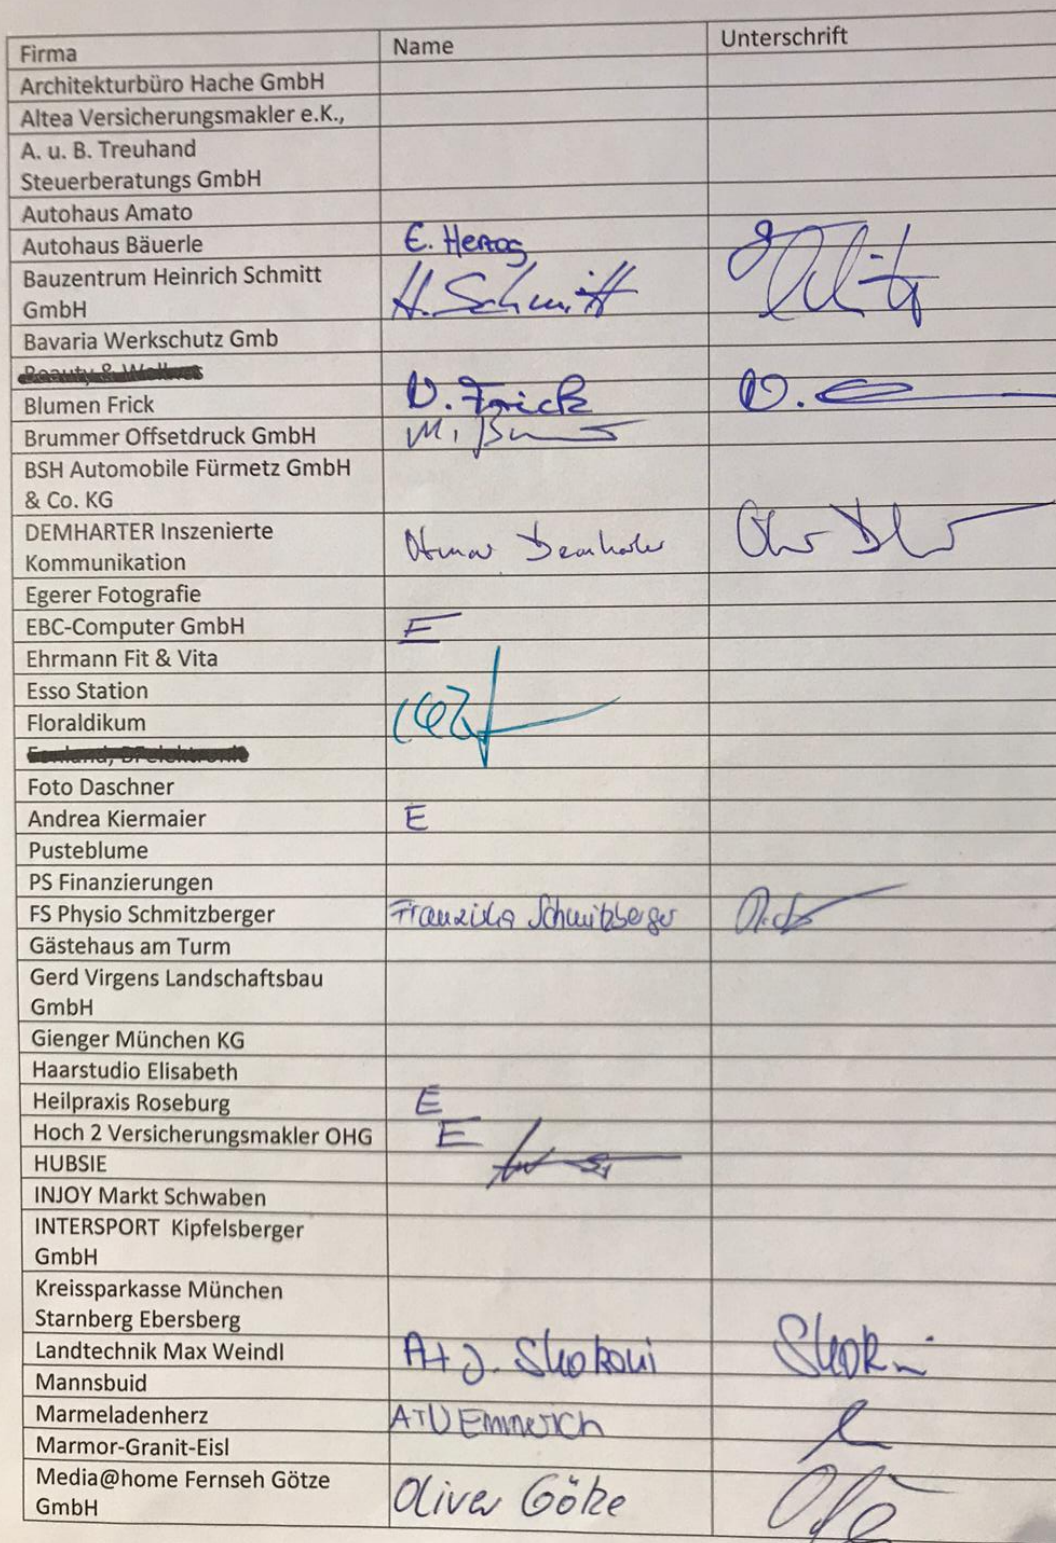 Firma Name Unterschrift
Architekturbüro Hache GmbH
Altea Versicherungsmakler e.K.,
A. u. B. Treuhand
Steuerberatungs GmbH
Autohaus Amato
Autohaus Bäuerle E. Herzog
Bauzentrum Heinrich Schmitt
GmbH H. Schmitt
Bavaria Werkschutz Gmb
Beauty & Wellnes
Blumen Frick D. Frick
Brummer Offsetdruck GmbH M.
BSH Automobile Fürmetz GmbH
& Co. KG
DEMHARTER Inszenierte
Kommunikation Otmar Demharter
Egerer Fotografie
EBC-Computer GmbH E
Ehrmann Fit & Vita
Esso Station
Floraldikum
Foto Daschner
Andrea Kiermaier E
Pusteblume
PS Finanzierungen
FS Physio Schmitzberger Franziska Schmitzberger
Gästehaus am Turm
Gerd Virgens Landschaftsbau
GmbH
Gienger München KG
Haarstudio Elisabeth
Heilpraxis Roseburg E
Hoch 2 Versicherungsmakler OHG E
HUBSIE
INJOY Markt Schwaben
INTERSPORT Kipfelsberger
GmbH
Kreissparkasse München
Starnberg Ebersberg
Landtechnik Max Weindl A+J. Shokoui
Mannsbuid
Marmeladenherz A+U Emmerich
Marmor-Granit-Eisl
Media@home Fernseh Götze
GmbH Oliver Götze